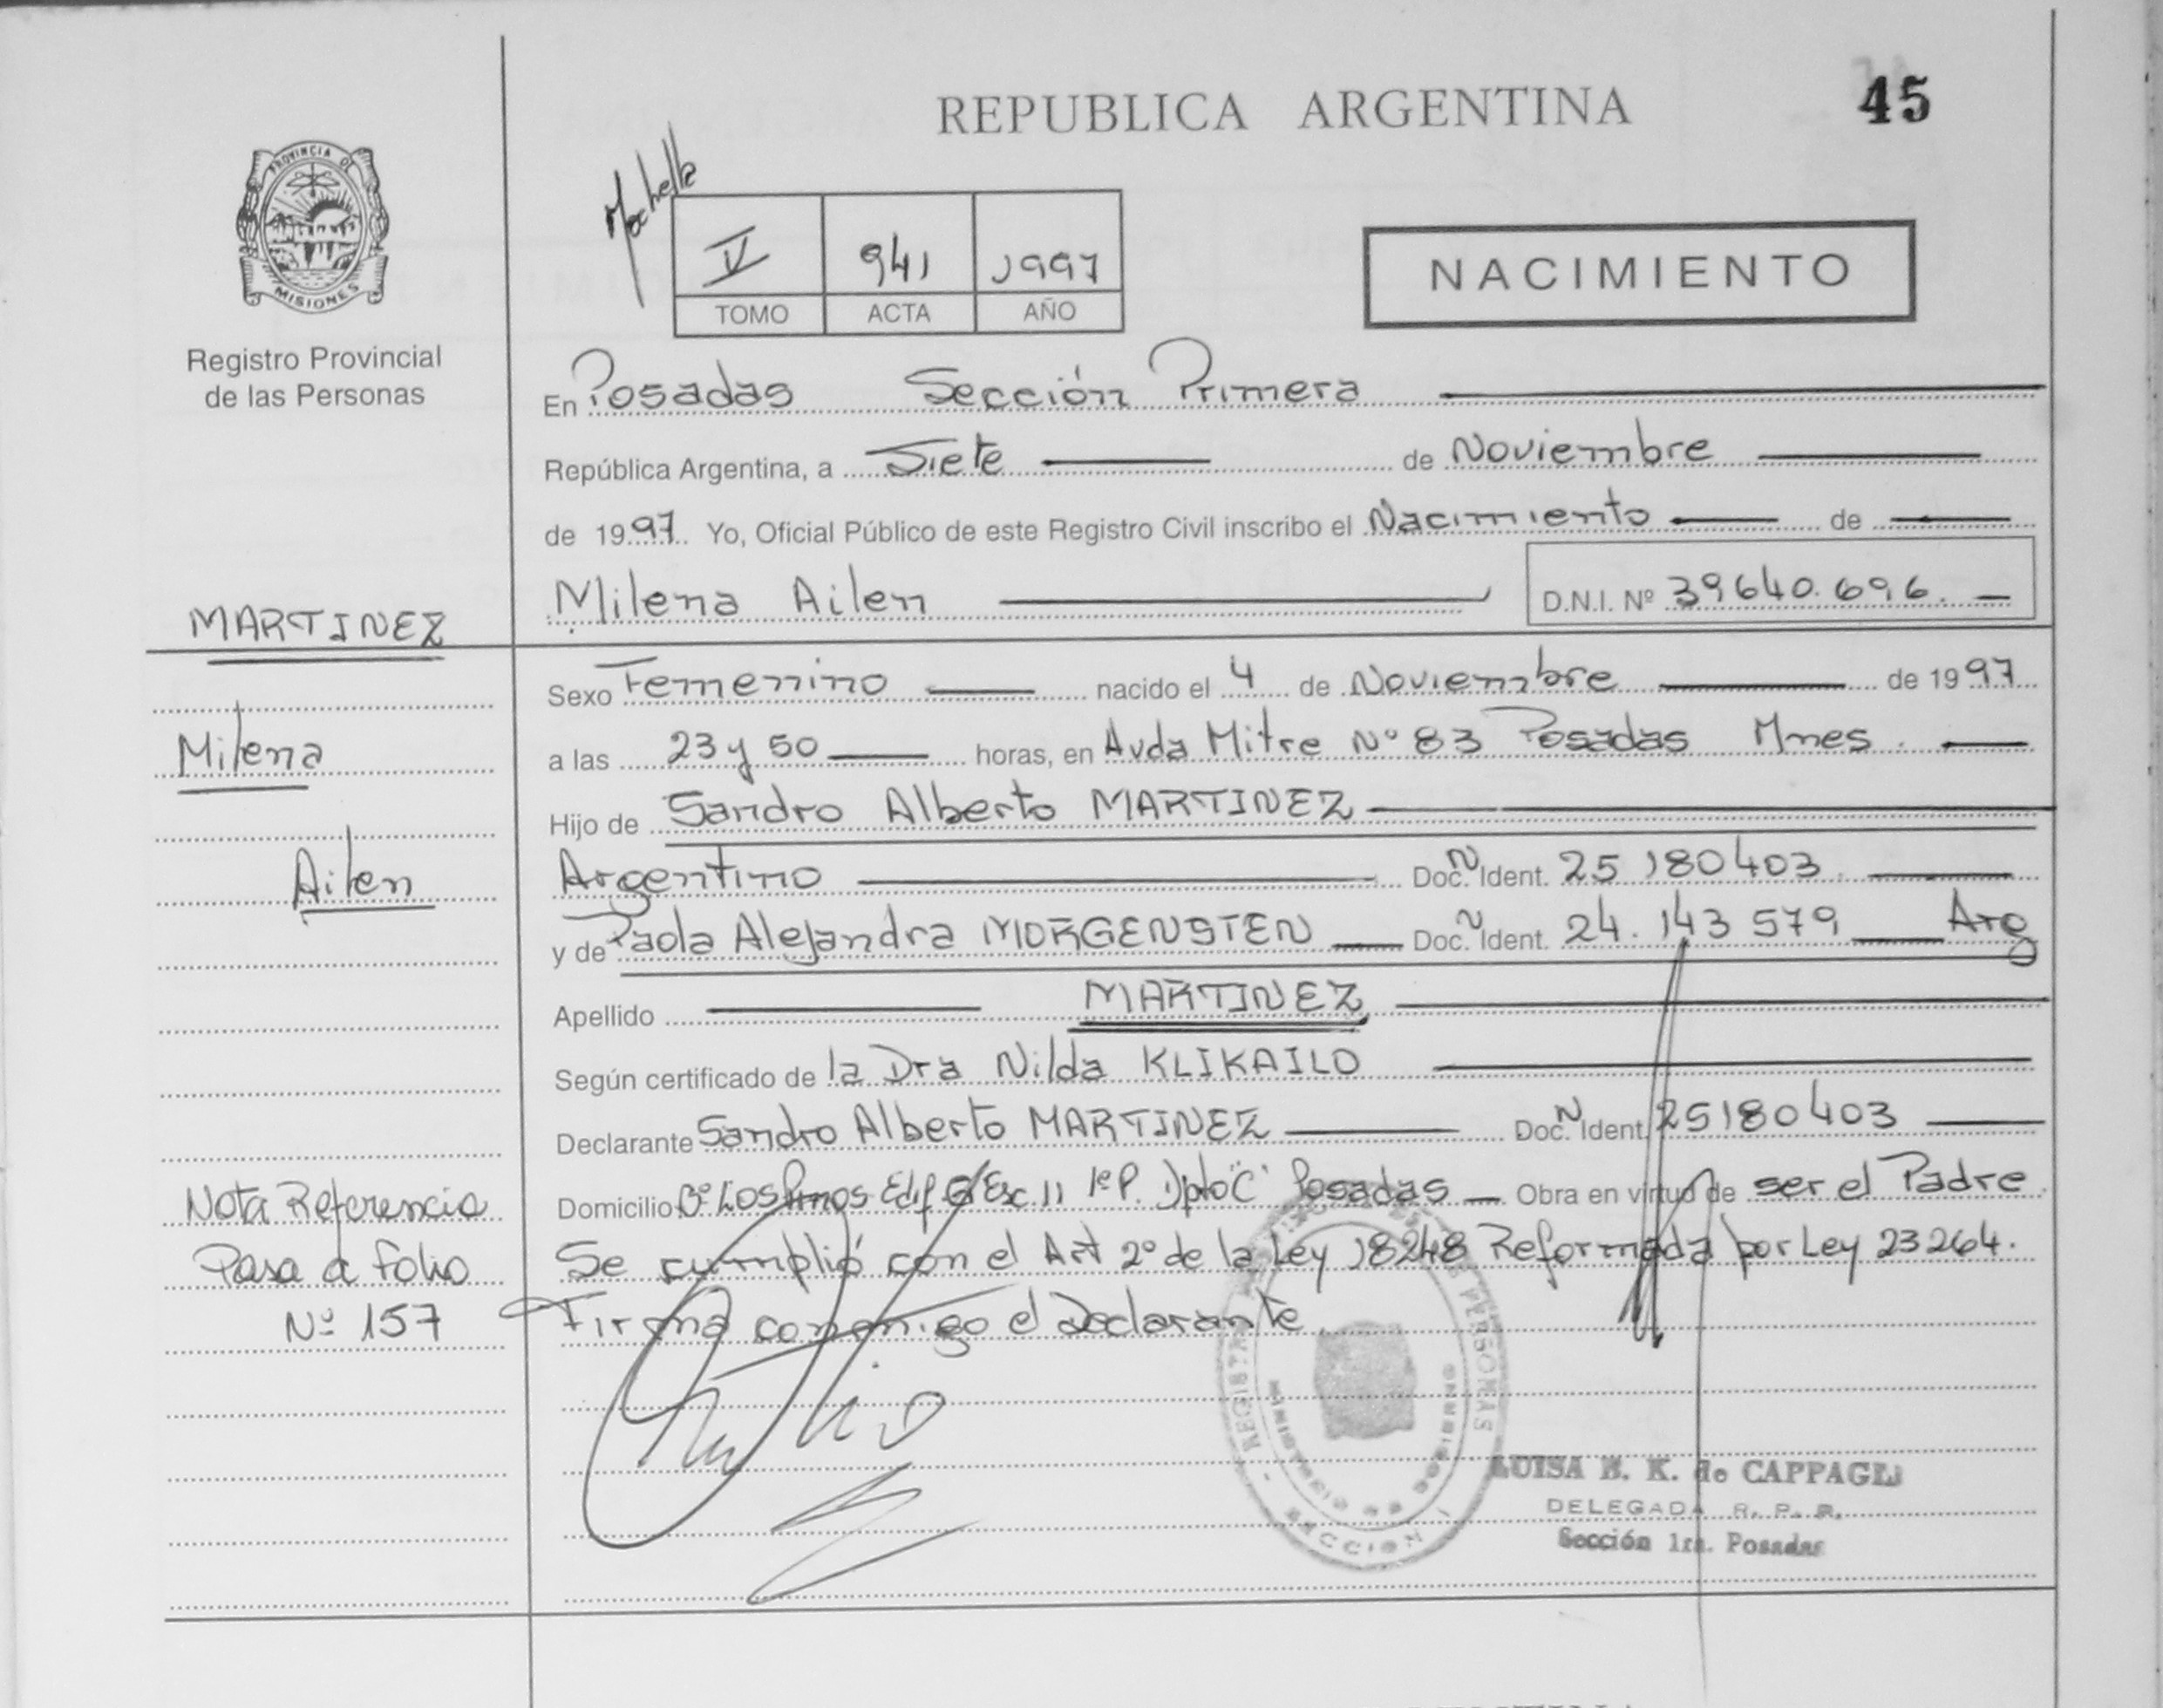 REPUBLICA ARGENTINA
45
PROVINCIA DE
MISIONES
Registro Provincial
de las Personas
V 941 1997
TOMO ACTA AÑO
NACIMIENTO
En Posadas Sección Primera
República Argentina, a Siete de Noviembre
de 1997 Yo, Oficial Público de este Registro Civil inscribo el Nacimiento de
Milena Ailen D.N.I. Nº 39640.696.
MARTINEZ
Milena
Ailen
Sexo Femenino nacido el 4 de Noviembre de 1997
a las 23 y 50 horas, en Avda Mitre Nº 83 Posadas Mnes.
Hijo de Sandro Alberto MARTINEZ
Argentino Doc. N Ident. 25180403
y de Paola Alejandra MORGENSTEN Doc. N Ident. 24.143579 Arg
Apellido MARTINEZ
Según certificado de la Dra Nilda KLIKAILO
Declarante Sandro Alberto MARTINEZ Doc. N Ident. 25180403
Domicilio Bº Los Pinos Edif 6 Esc. 11 1º P. Dpto "C" Posadas Obra en virtud de ser el Padre
Se cumplió con el Art 2º de la Ley 18248 Reformada por Ley 23264.
Firma conmigo el Declarante
Nota Referencia
Pasa a folio
Nº 157
LUISA B. K. de CAPPAGLI
DELEGADA R. P. P.
Sección 1ra. Posadas